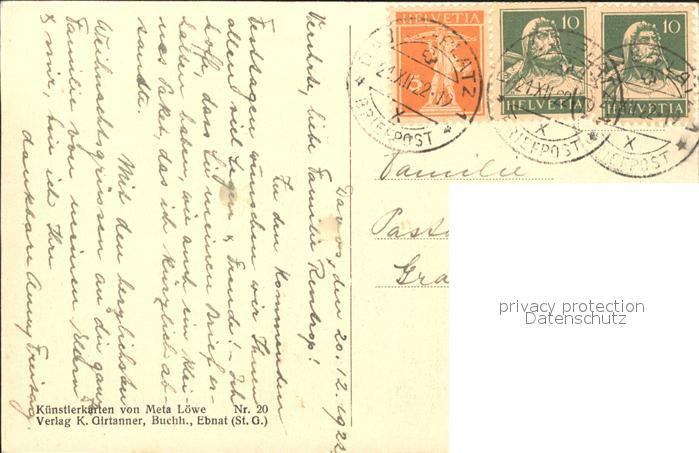 Davos, den 20.12.1922
Verehrte, liebe Familie Rentrop!
Zu den kommenden
Festtagen wünschen wir Ihnen
allen viel Segen & Freude! – Ich
hoffe, dass Sie meinen Brief er-
halten haben, wie auch ein klei-
nes Paket, das ich kürzlich ab-
sandte.
Mit den herzlichsten
Weihnachtsgrüssen an die ganze
Familie von meinen Eltern
& mir, bin ich Ihre
dankbare Anny Freitag
HELVETIA
15
10
HELVETIA
10
HELVETIA
PLATZ
21.XII.22.-17
X
BRIEFPOST
Familie
Past
Gra
privacy protection
Datenschutz
Künstlerkarten von Meta Löwe Nr. 20
Verlag K. Girtanner, Buchh., Ebnat (St. G.)